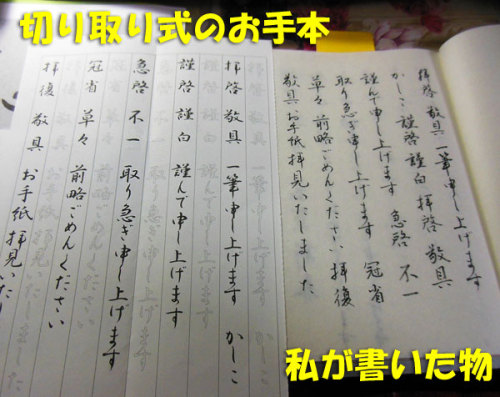 切り取り式のお手本
拝啓 敬具 一筆申し上げます かしこ
謹啓 謹白 謹んで申し上げます
急啓 不一 取り急ぎ申し上げます
冠省 草々 前略ごめんください
拝復 敬具 お手紙拝見いた
拝啓 敬具 一筆申し上げます
かしこ 謹啓 謹白 拝啓 敬具
謹んで申し上げます 急啓 不一
取り急ぎ申し上げます 冠省
草々 前略ごめんください 拝復
敬具 お手紙拝見いたしました
私が書いた物